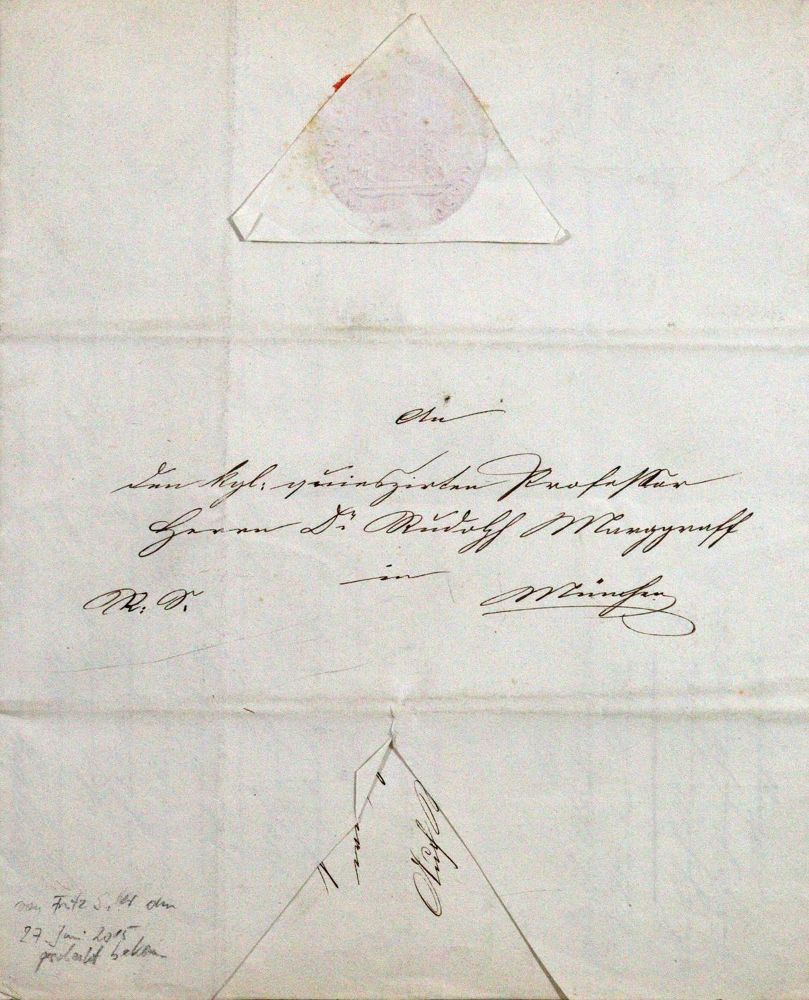 An
den kgl: quieszirten Professor
Herrn Dr. Rudolph Marggraff
in
R. S. München
von Fritz den
27. Juni 2015
geschenkt bekom